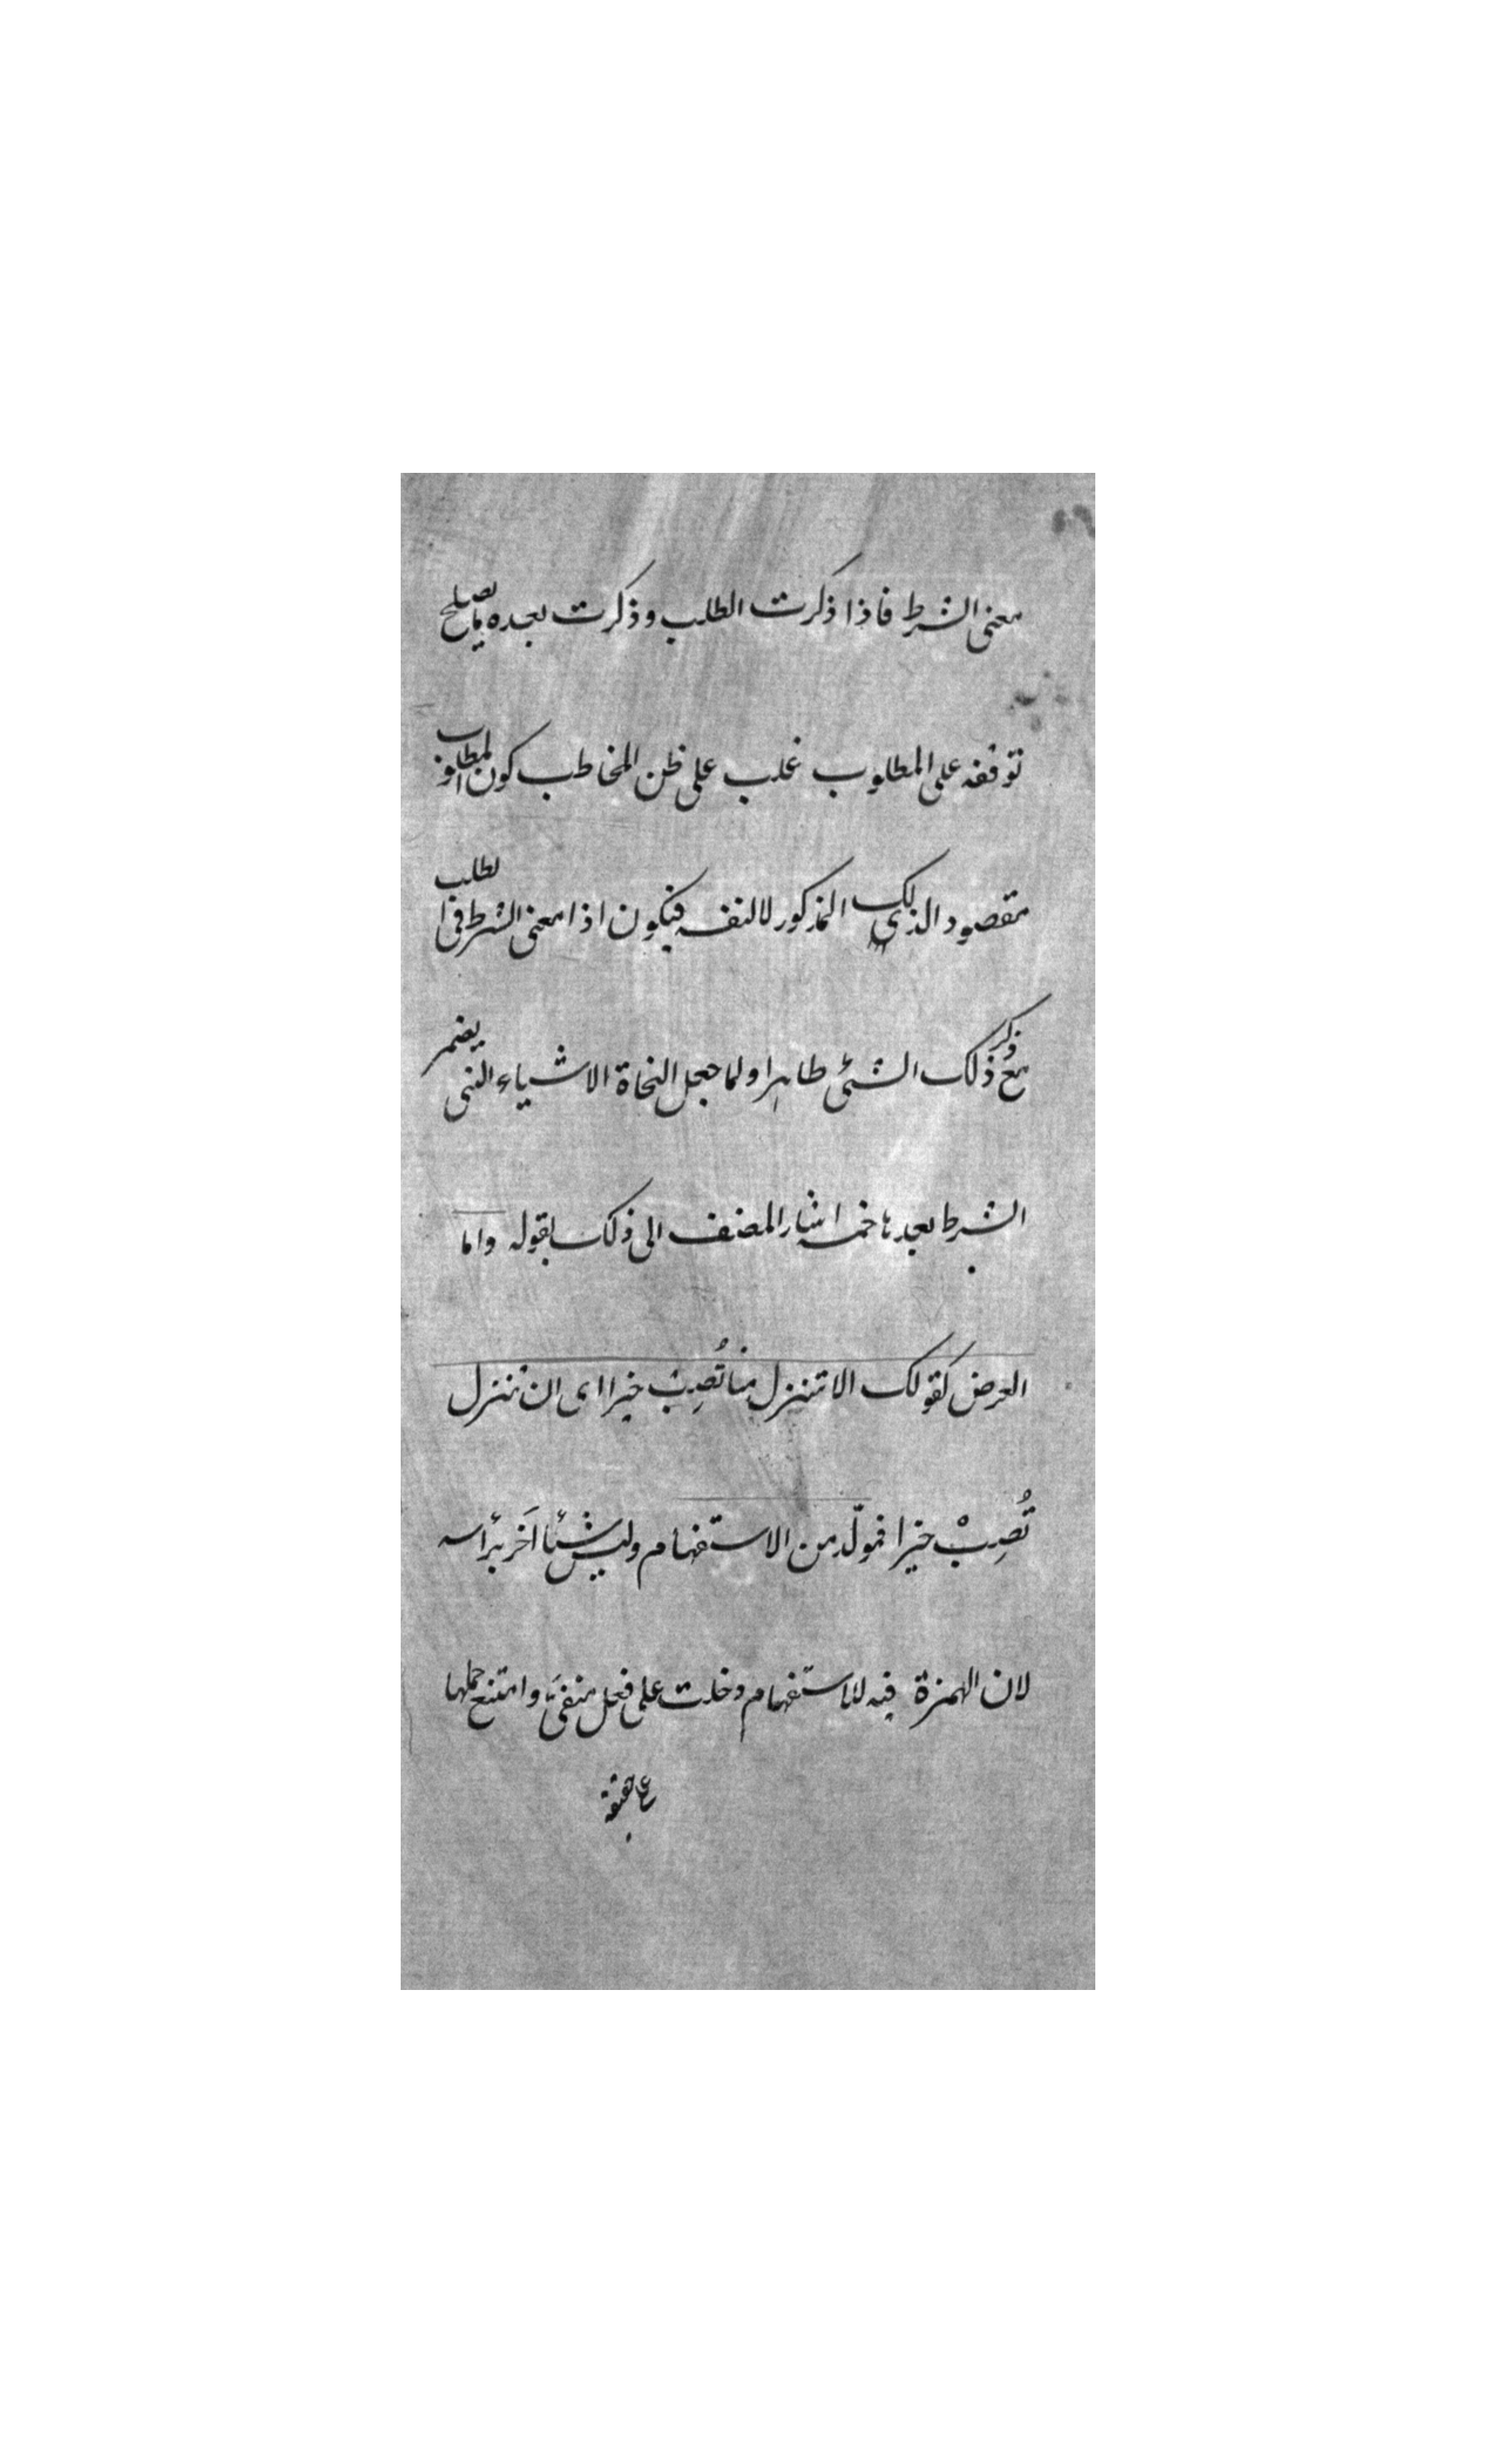 معنى الشرط فاذا ذكرت الطلب وذكرت بعده ما يصلح
توقفه على المطلوب غلب على ظن المخاطب كون المطلوب
مقصود الذلك المذكور لا لنفسه فيكون اذا معنى الشرط فى الطلب
مع ذكر ذلك الشئ ظاهرا ولما جعل النحاة الاشياء التى يضمر
الشرط بعدها خمسة اشار المصنف الى ذلك بقوله واما
العرض كقولك الا تنزل بنا تُصِبْ خيرا اى ان تنزل
تُصِبْ خيرا فمولّد من الاستفهام وليس شيئا آخر برأسه
لان الهمزة فيه للاستفهام دخلت على فعل منفىّ وامتنع حملها